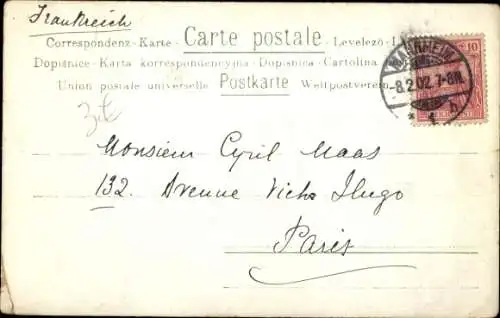 Frankreich
Correspondenz-Karte - Carte postale - Levelezö-L
Dopisnice - Karta korrespondencyjna - Dopisnica - Cartolina
Union postale universelle Postkarte Weltpostverein
MANNHEIM
-8.2.02. 7-8N.
* 1 h
10
Monsieur Cyril Maas
132. Avenue Victo Hugo
Paris